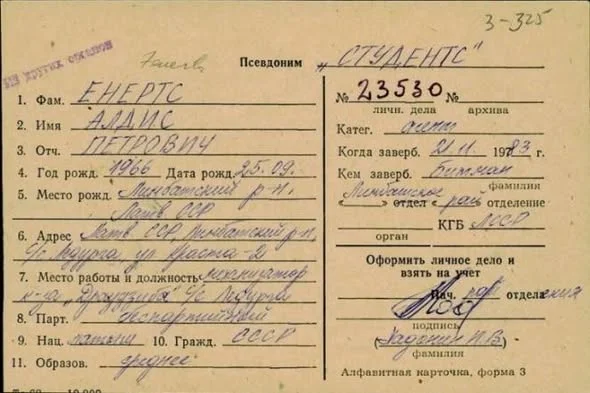 3-325
Псевдоним „СТУДЕНТС"
1. Фам. ЕНЕРТС
2. Имя АЛДИС
3. Отч. ПЕТРОВИЧ
4. Год рожд. 1966 Дата рожд. 25.09.
5. Место рожд. Лимбажский р-н,
Латв ССР
6. Адрес Латв ССР, Лимбажский р-н,
с/с Ледурга, ул Краста-2
7. Место работы и должность механизатор
к-за „Драудзиба" с/с Ледурга
8. Парт. беспартийный
9. Нац. латыш 10. Гражд. СССР
11. Образов. среднее
№ 23530 №
личн. дела архива
Катег. агент
Когда заверб. 21.11 1983 г.
Кем заверб. Битман
фамилия
Лимбажское рай
отдел отделение
КГБ ЛССР
орган
Оформить личное дело и
взять на учет
Нач. рай отделения
подпись
фамилия
Алфавитная карточка, форма 3